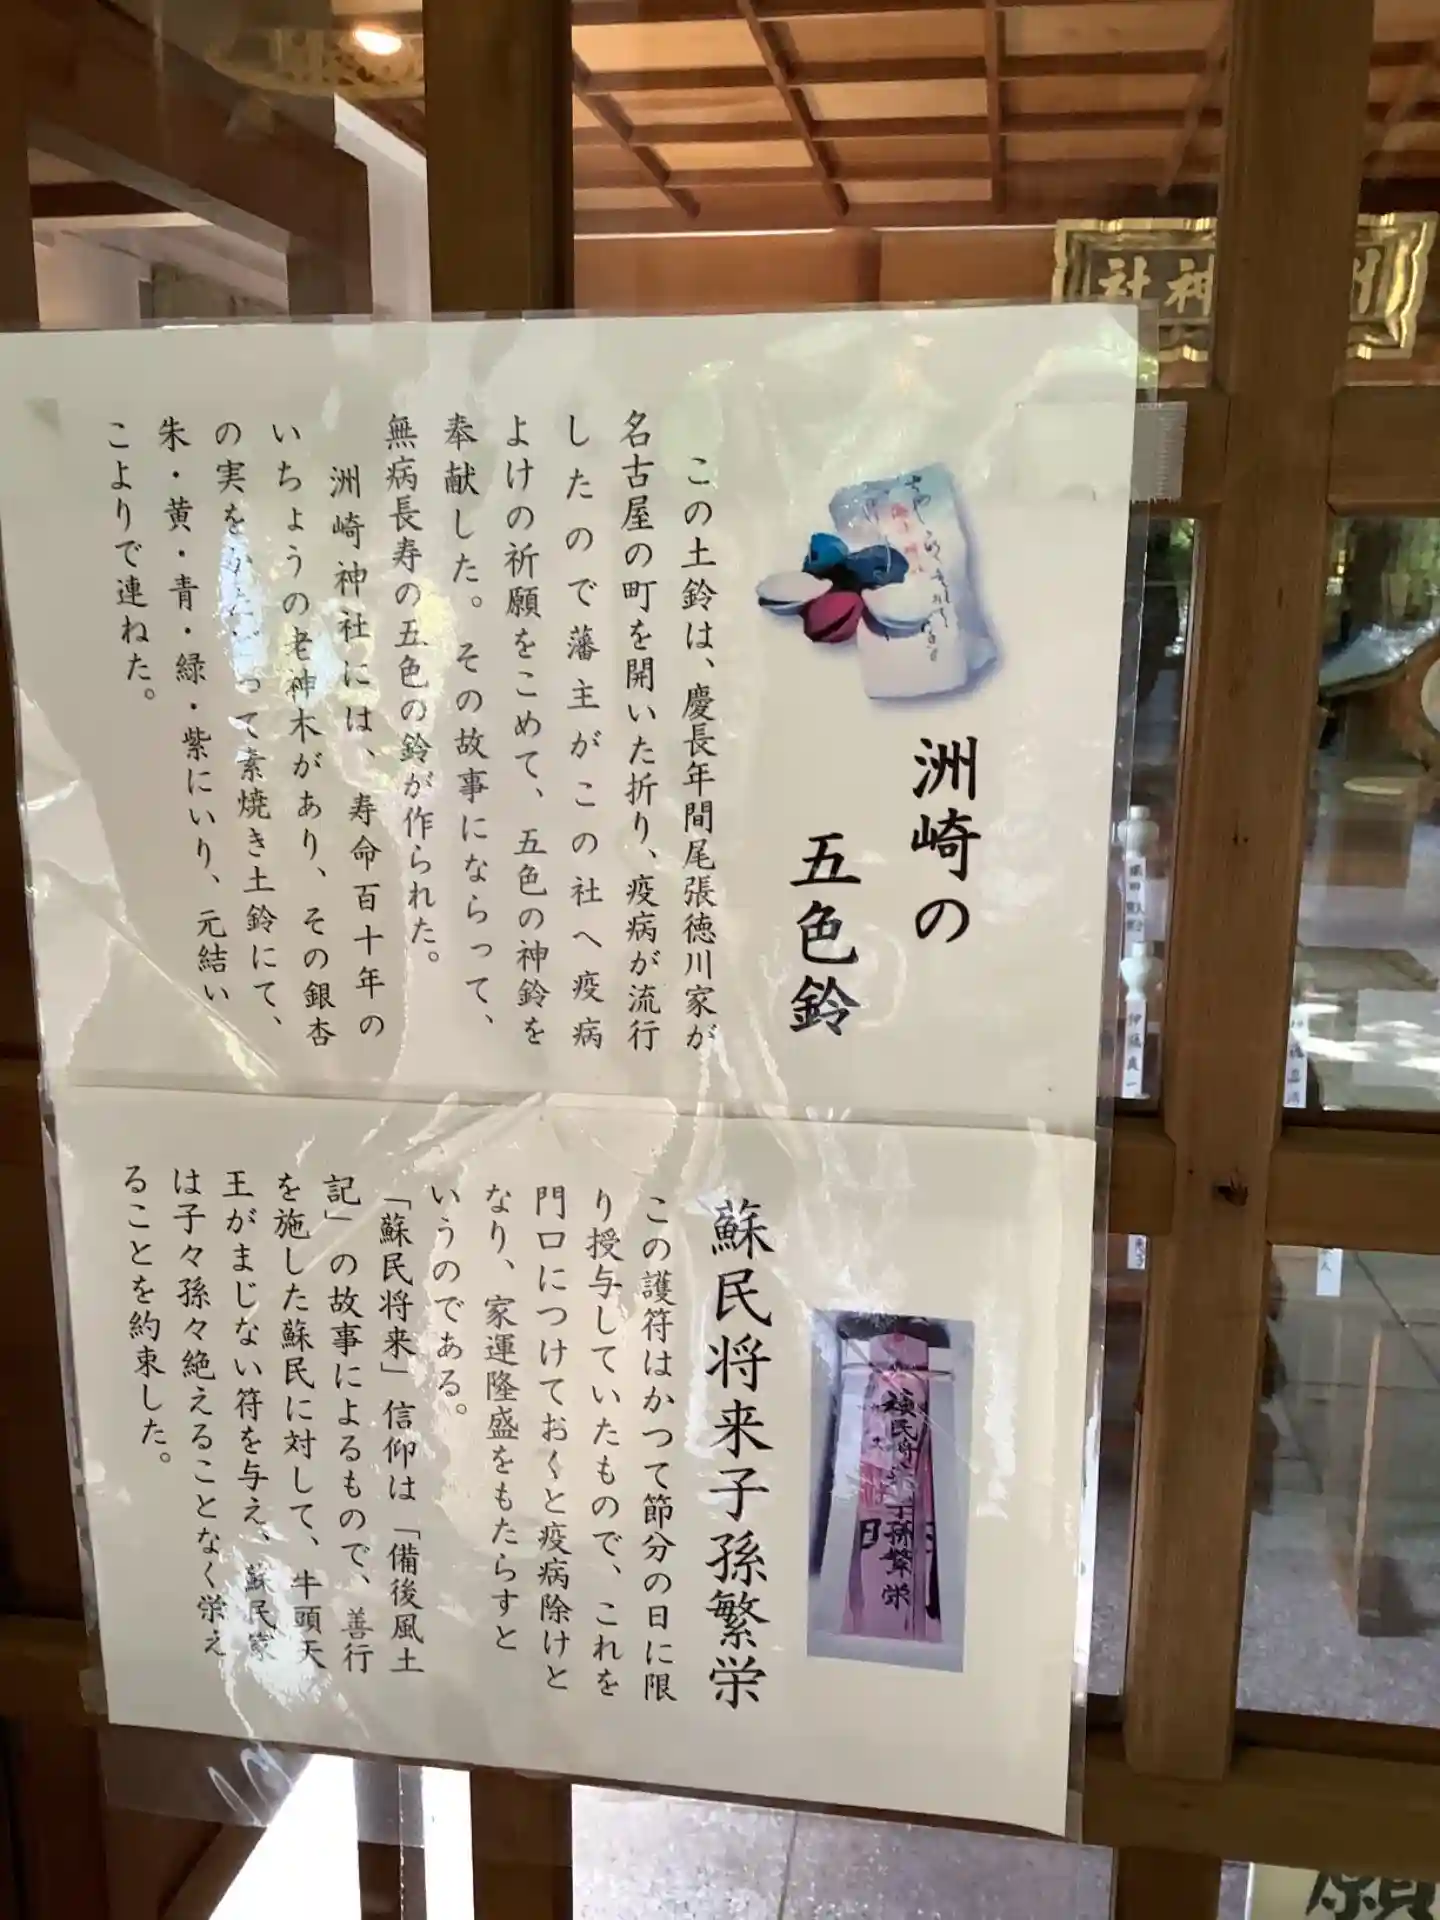 洲崎の
五色鈴
この土鈴は、慶長年間尾張徳川家が
名古屋の町を開いた折り、疫病が流行
したので藩主がこの社へ疫病
よけの祈願をこめて、五色の神鈴を
奉献した。その故事にならって、
無病長寿の五色の鈴が作られた。
洲崎神社には、寿命百十年の
いちょうの老神木があり、その銀杏
の実をかたどって素焼き土鈴にて、
朱・黄・青・緑・紫にいり、元結い
こよりで連ねた。
蘇民将来子孫繁栄
この護符はかつて節分の日に限
り授与していたもので、これを
門口につけておくと疫病除けと
なり、家運隆盛をもたらすと
いうのである。
「蘇民将来」信仰は「備後風土
記」の故事によるもので、善行
を施した蘇民に対して、牛頭天
王がまじない符を与え、蘇民家
は子々孫々絶えることなく栄え
ることを約束した。
神社
子孫繁栄
伊藤
願